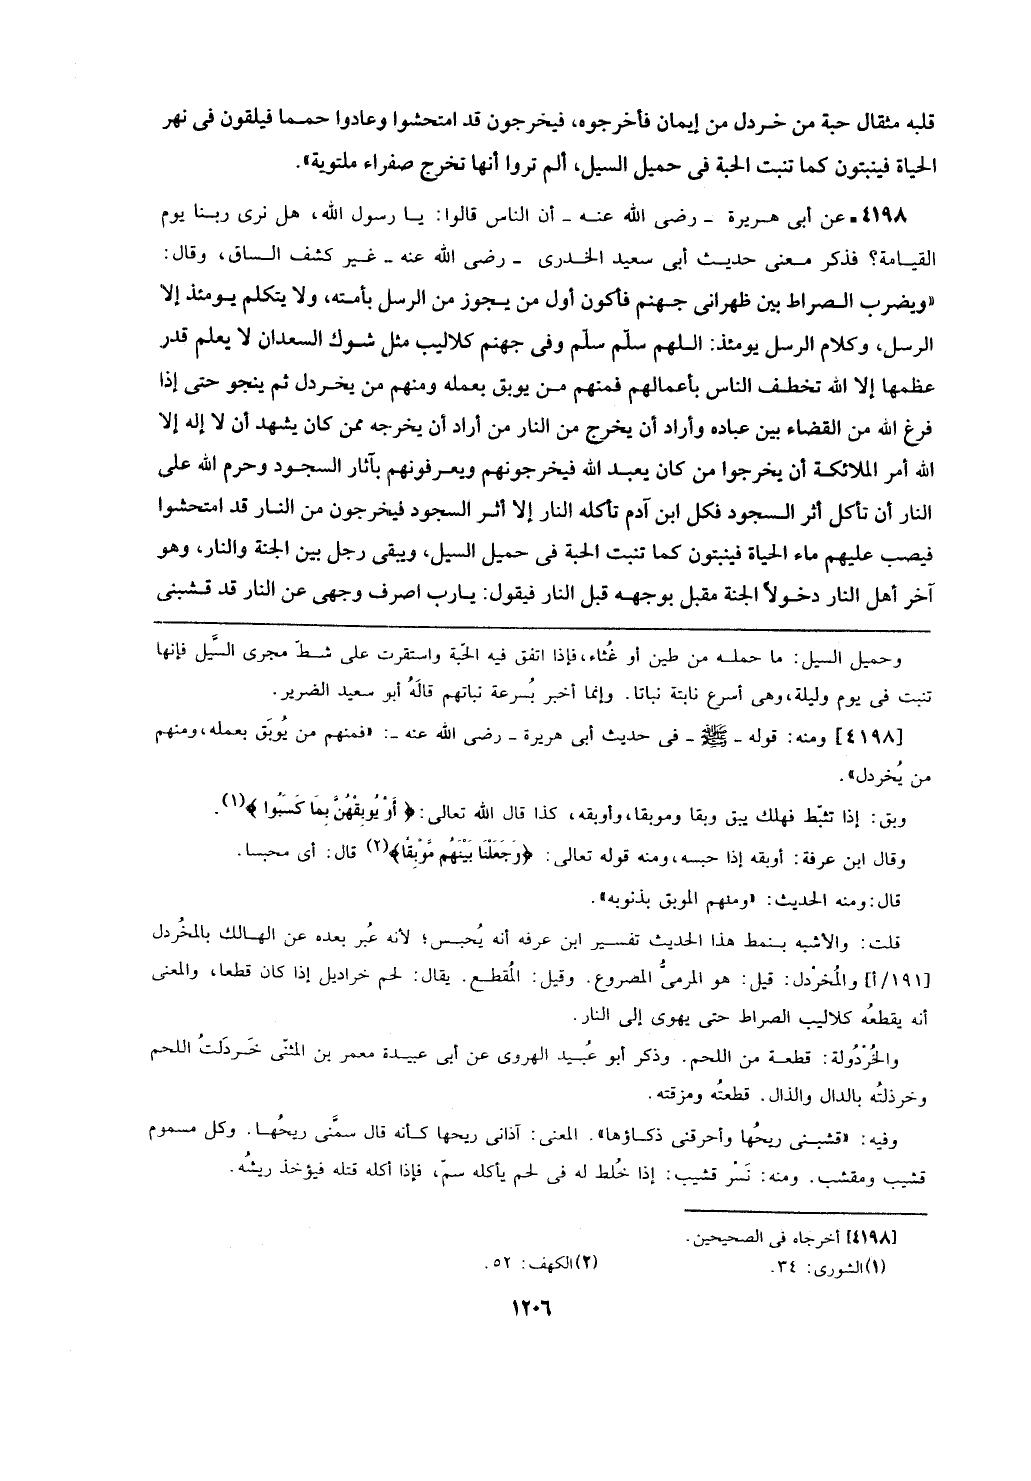 قلبه مثقال حبة من خردل من إيمان فأخرجوه، فيخرجون قد امتحشوا وعادوا حمما فيلقون فى نهر
الحياة فينبتون كما تنبت الحبة فى حميل السيل، ألم تروا أنها تخرج صفراء ملتوية».
٤١٩٨ـ عن أبى هريرة ـ رضى الله عنه ـ أن الناس قالوا: يا رسول الله، هل نرى ربنا يوم
القيامة؟ فذكر معنى حديث أبى سعيد الخدرى ـ رضى الله عنه ـ غير كشف الساق، وقال:
«ويضرب الصراط بين ظهرانى جهنم فأكون أول من يجوز من الرسل بأمته، ولا يتكلم يومئذ إلا
الرسل، وكلام الرسل يومئذ: اللهم سلّم سلّم وفى جهنم كلاليب مثل شوك السعدان لا يعلم قدر
عظمها إلا الله تخطف الناس بأعمالهم فمنهم من يوبق بعمله ومنهم من يخردل ثم ينجو حتى إذا
فرغ الله من القضاء بين عباده وأراد أن يخرج من النار من أراد أن يخرجه ممن كان يشهد أن لا إله إلا
الله أمر الملائكة أن يخرجوا من كان يعبد الله فيخرجونهم ويعرفونهم بآثار السجود وحرم الله على
النار أن تأكل أثر السجود فكل ابن آدم تأكله النار إلا أثر السجود فيخرجون من النار قد امتحشوا
فيصب عليهم ماء الحياة فينبتون كما تنبت الحبة فى حميل السيل، ويبقى رجل بين الجنة والنار، وهو
آخر أهل النار دخولاً الجنة مقبل بوجهه قبل النار فيقول: يارب اصرف وجهى عن النار قد قشبنى
وحميل السيل: ما حمله من طين أو غُثاء، فإذا اتفق فيه الحَبة واستقرت على شطّ مجرى السَّيل فإنها
تنبت فى يوم وليلة، وهى أسرع نابتة نباتا. وإنما أخبر بُسرعة نباتهم قالَهُ أبو سعيد الضرير.
[٤١٩٨] ومنه: قوله ـ ﷺ ـ فى حديث أبى هريرة ـ رضى الله عنه ـ: «فمنهم من يُوبَق بعمله، ومنهم
من يُخردل».
وبق: إذا تثبّط فهلك يبق وبقا وموبقا، وأوبقه، كذا قال الله تعالى: ﴿أَوْ يُوبِقْهُنَّ بِمَا كَسَبُوا﴾(١).
وقال ابن عرفة: أوبقه إذا حبسه، ومنه قوله تعالى: ﴿وَجَعَلْنَا بَيْنَهُم مَّوْبِقًا﴾(٢) قال: أى محبسا.
قال: ومنه الحديث: «ومنهم الموبق بذنوبه».
قلت: والأشبه بنمط هذا الحديث تفسير ابن عرفه أنه يُحبس؛ لأنه عبّر بعده عن الهالك بالمخُردل
[١٩١/أ] والمُخرْدل: قيل: هو المرمىُّ المصروع. وقيل: المُقطع. يقال: لحم خراديل إذا كان قطعا، والمعنى
أنه يقطعُه كلاليب الصراط حتى يهوى إلى النار.
والخُرْدُولة: قطعة من اللحم. وذكر أبو عُبيد الهروى عن أبى عبيدة معمر بن المثنّى خَردَلتُ اللحم
وخرذلتُه بالدال والذال. قطعتُه ومزقته.
وفيه: «قشبنى ريحُها وأحرقنى ذكاؤها». المعنى: آذانى ريحها كأنه قال سمَّنى ريحُها. وكل مسموم
قشيب ومقشب. ومنه: نَسْر قشيب: إذا خُلط له فى لحم يأكله سمّ، فإذا أكله قتله فيؤخذ ريشُه.
[٤١٩٨] أخرجاه فى الصحيحين.
(١) الشورى: ٣٤. (٢) الكهف: ٥٢.
١٢٠٦